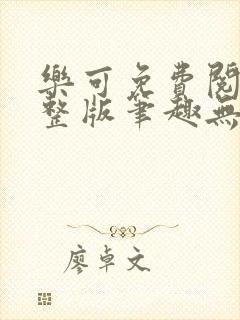 樂可免費閱
整版筆趣無
廖卓文